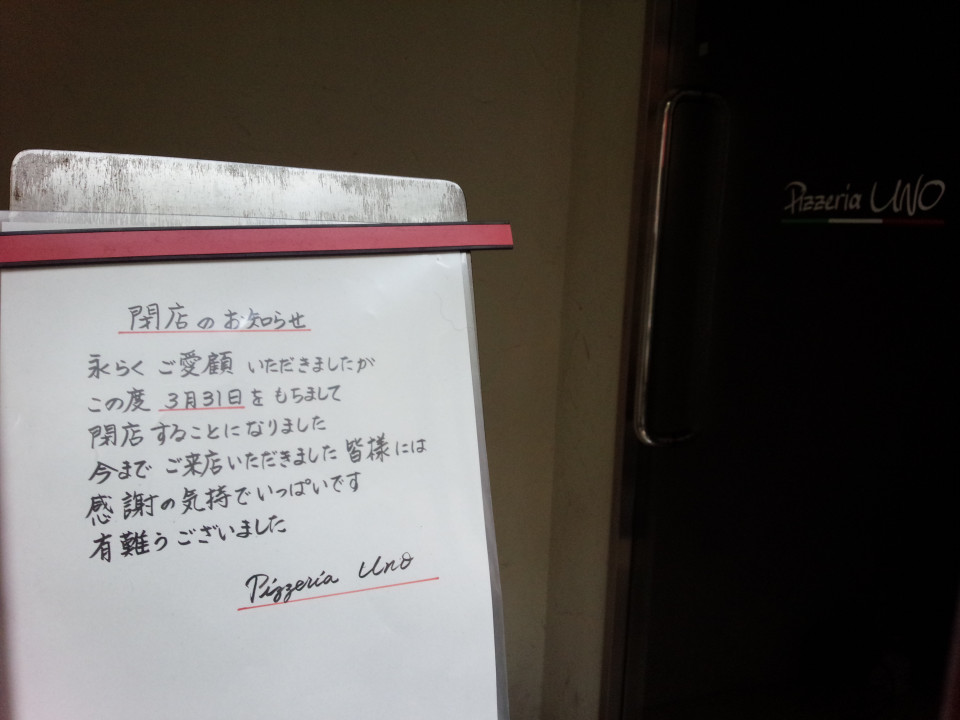 閉店のお知らせ
永らくご愛顧いただきましたが
この度 3月31日をもちまして
閉店することになりました
今までご来店いただきました皆様には
感謝の気持でいっぱいです
有難うございました
Pizzeria Uno
Pizzeria UNO